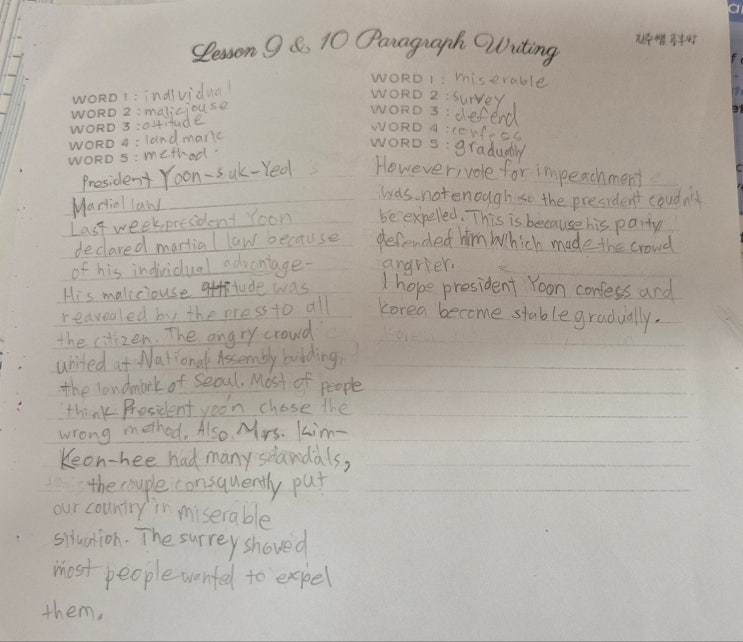 Lesson 9 & 10 Paragraph Writing
진주쌤 공부방
WORD 1 : individual
WORD 2 : maliciouse
WORD 3 : attitude
WORD 4 : landmark
WORD 5 : method.
President Yoon-suk-Yeol
Martial law
Last week, president Yoon
declared martial law because
of his individual advantage.
His maliciouse attitude was
reavealed by the press to all
the citizen. The angry crowd
united at National Assembly building,
the landmark of Seoul. Most of people
think President yoon chose the
wrong method. Also, Mrs. Kim-
Keon-hee had many scandals,
the couple consquently put
our country in miserable
situation. The surrey showed
most people wanted to expel
them.
WORD 1 : miserable
WORD 2 : survey
WORD 3 : defend
WORD 4 : confess
WORD 5 : gradually
However, vote for impeachment
was not enough so the president coudn't
be expeled. This is because his party
defended him which made the crowd
angrier.
I hope president Yoon confess and
Korea become stable gradually.